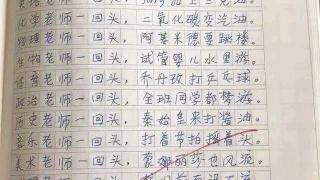 老师一回头，
化学老师一回头，二氧化碳变汽油。
物理老师一回头，阿基米德要跳楼。
生物老师一回头，试管婴儿水里游。
体育老师一回头，乔丹改打乒乓球。
政治老师一回头，全班同学都梦游。
历史老师一回头，秦始皇来打酱油。
音乐老师一回头，打着节拍摇着头。
美术老师一回头，蒙娜丽莎也风流。